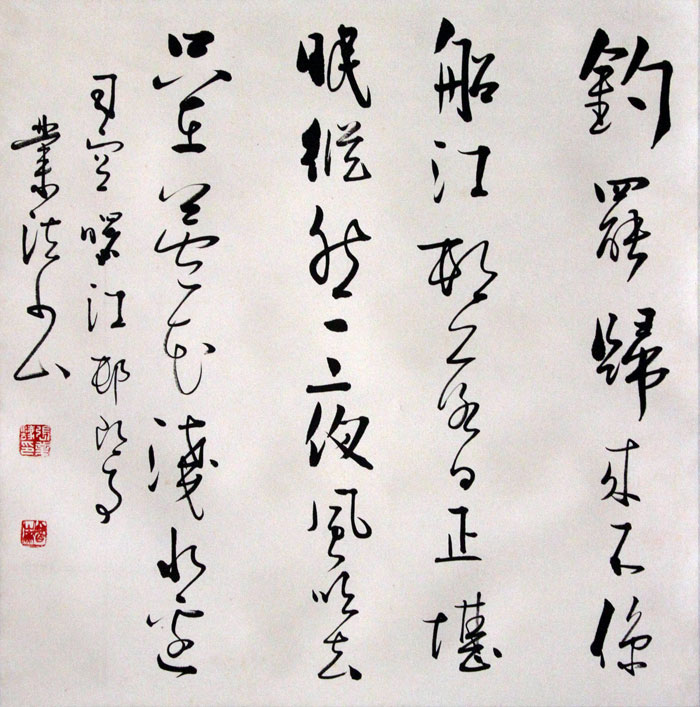 釣罷歸來不係
船江邨落月正堪
眠縱然一夜風吹去
只在蘆花淺水邊
司空曙江邨即事
業法